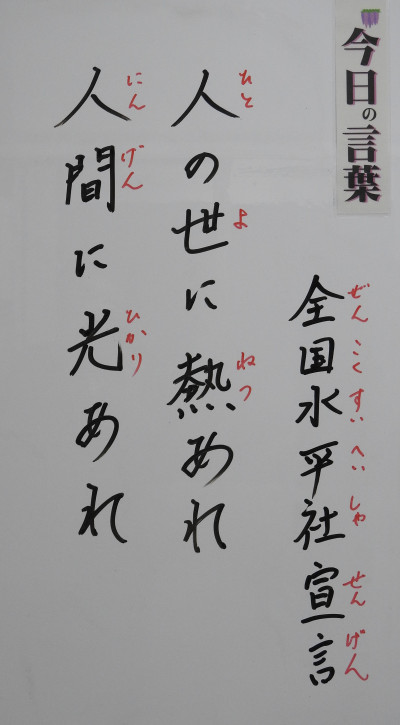 今日の言葉
全国水平社宣言
ぜんこくすいへいしゃせんげん
人の世に熱あれ
ひと
よ
ねつ
人間に光あれ
にんげん
ひかり